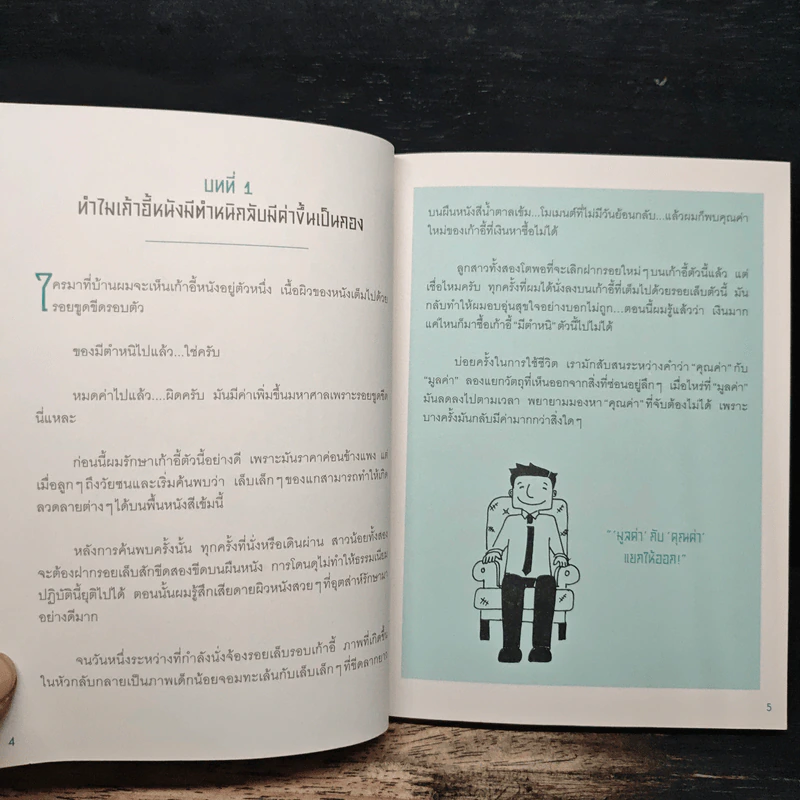 บทที่ 1
ทำไมเก้าอี้หนังมีตำหนิกลับมีค่าขึ้นเป็นกอง
ใครมาที่บ้านผมจะเห็นเก้าอี้หนังอยู่ตัวหนึ่ง เนื้อผิวของหนังเต็มไปด้วย
รอยขูดขีดรอบตัว
ของมีตำหนิไปแล้ว...ใช่ครับ
หมดค่าไปแล้ว....ผิดครับ มันมีค่าเพิ่มขึ้นมหาศาลเพราะรอยขูดขีด
นี่แหละ
ก่อนนี้ผมรักษาเก้าอี้ตัวนี้อย่างดี เพราะมันราคาค่อนข้างแพง แต่
เมื่อลูกๆ ถึงวัยซนและเริ่มค้นพบว่า เล็บเล็กๆ ของแกสามารถทำให้เกิด
ลวดลายต่างๆ ได้บนพื้นหนังสีเข้มนี้
หลังการค้นพบครั้งนั้น ทุกครั้งที่นั่งหรือเดินผ่าน สาวน้อยทั้งสอง
จะต้องฝากรอยเล็บสักขีดสองขีดบนผืนหนัง การโดนดุไม่ทำให้ธรรมเนียม
ปฏิบัตินี้ยุติไปได้ ตอนนั้นผมรู้สึกเสียดายผิวหนังสวยๆ ที่อุตส่าห์รักษามา
อย่างดีมาก
จนวันหนึ่งระหว่างที่กำลังนั่งจ้องรอยเล็บรอบเก้าอี้ ภาพที่เกิดขึ้น
ในหัวกลับกลายเป็นภาพเด็กน้อยจอมทะเล้นกับเล็บเล็กๆ ที่ขีดลากยาว
4
บนผืนหนังสีน้ำตาลเข้ม...โมเมนต์ที่ไม่มีวันย้อนกลับ...แล้วผมก็พบคุณค่า
ใหม่ของเก้าอี้ที่เงินหาซื้อไม่ได้
ลูกสาวทั้งสองโตพอที่จะเลิกฝากรอยใหม่ๆ บนเก้าอี้ตัวนี้แล้ว แต่
เชื่อไหมครับ ทุกครั้งที่ผมได้นั่งลงบนเก้าอี้ที่เต็มไปด้วยรอยเล็บตัวนี้ มัน
กลับทำให้ผมอบอุ่นสุขใจอย่างบอกไม่ถูก...ตอนนี้ผมรู้แล้วว่า เงินมาก
แค่ไหนก็มาซื้อเก้าอี้ “มีตำหนิ” ตัวนี้ไปไม่ได้
บ่อยครั้งในการใช้ชีวิต เรามักสับสนระหว่างคำว่า “คุณค่า” กับ
“มูลค่า” ลองแยกวัตถุที่เห็นออกจากสิ่งที่ซ่อนอยู่ลึกๆ เมื่อไหร่ที่ “มูลค่า”
มันลดลงไปตามเวลา พยายามมองหา “คุณค่า” ที่จับต้องไม่ได้ เพราะ
บางครั้งมันกลับมีค่ามากกว่าสิ่งใดๆ
“‘มูลค่า’ กับ ‘คุณค่า’
แยกให้ออก!”
5